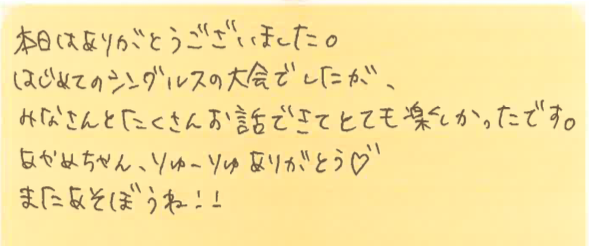 本日はありがとうございました。
はじめてのシングルスの大会でしたが、
みなさんとたくさんお話できてとても楽しかったです。
あやめちゃん、りゅーりゅありがとう♡
またあそぼうね!!